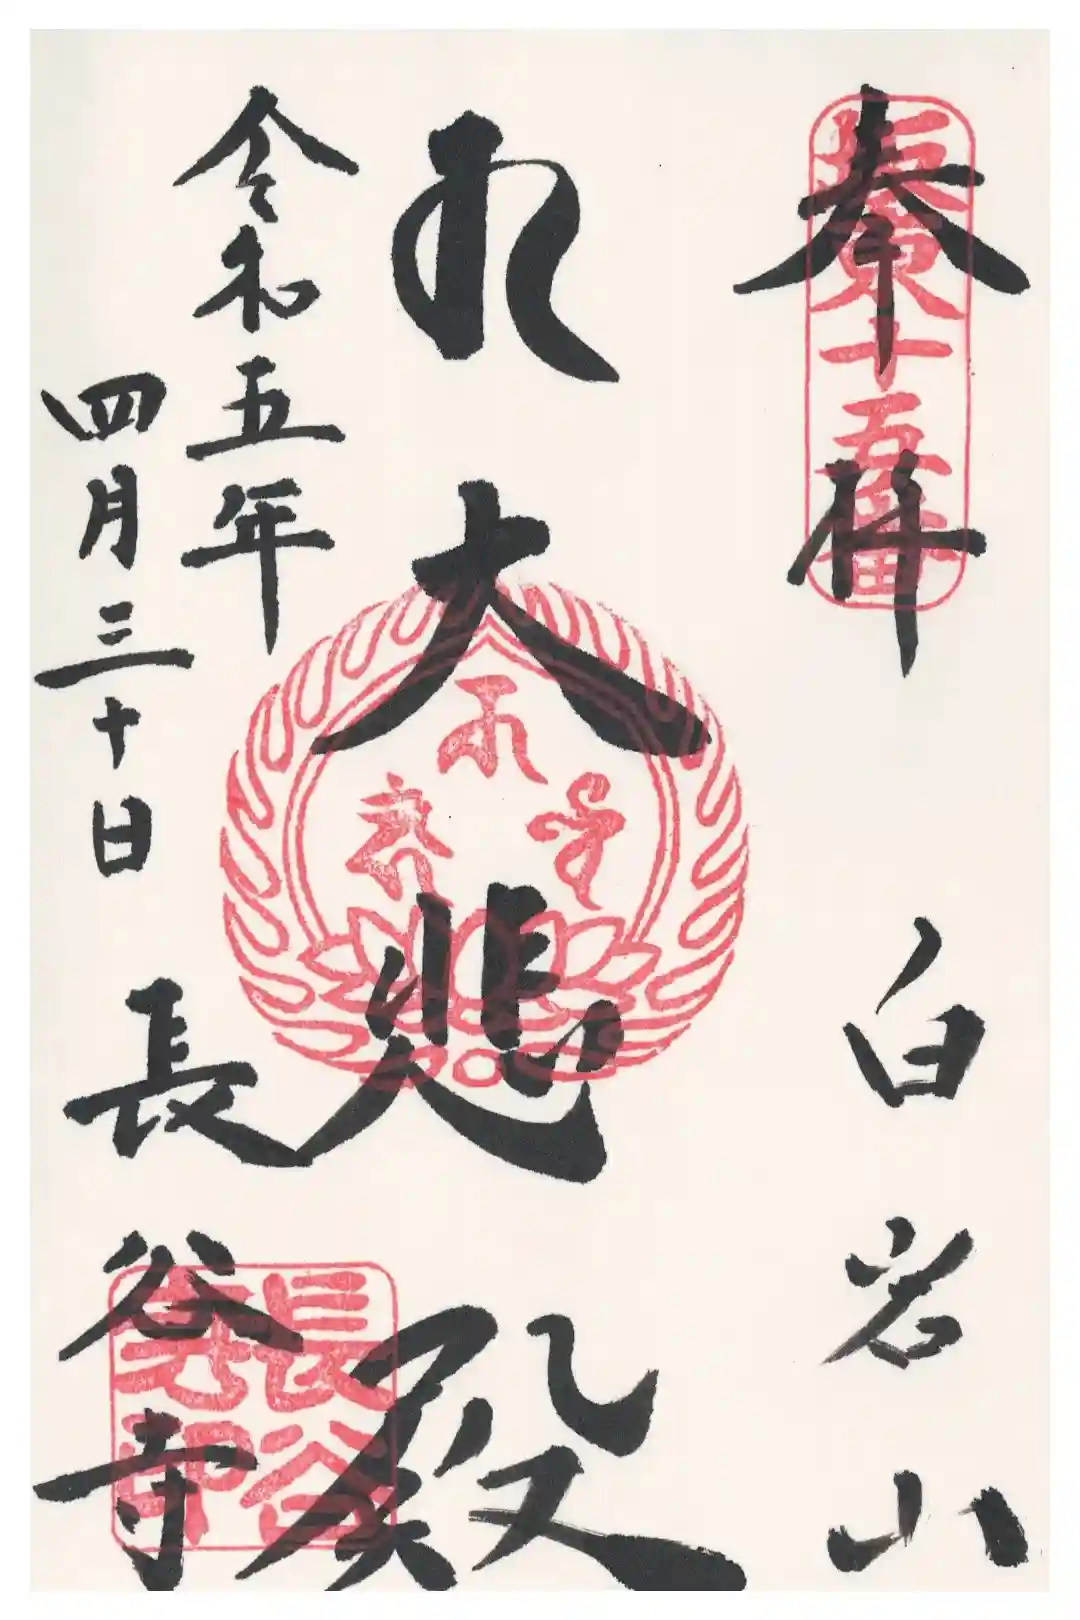 奉拝
坂東十五番
白岩山
大悲殿
令和五年
四月三十日
長谷寺
長谷